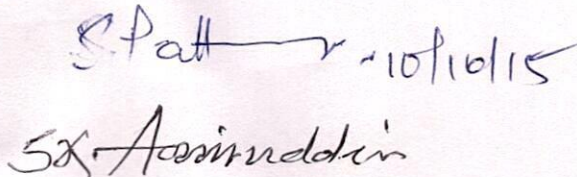 S. Patt 10/10/15
SK. Aasiruddin